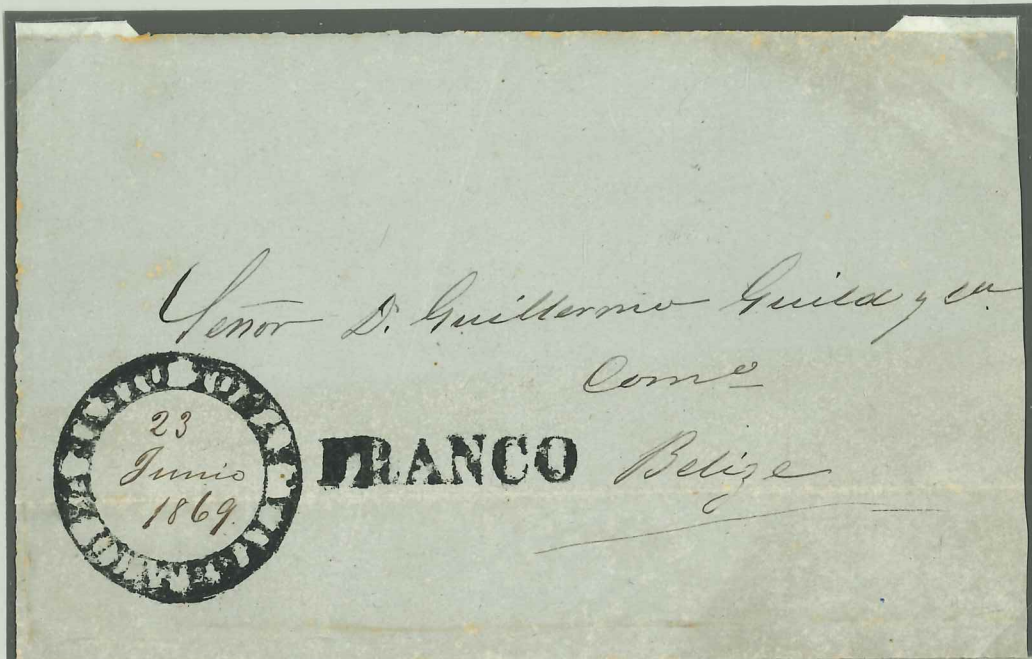 Señor D. Guillermo Guild y Ca.
Como
23
Junio
1869
FRANCO
Belize